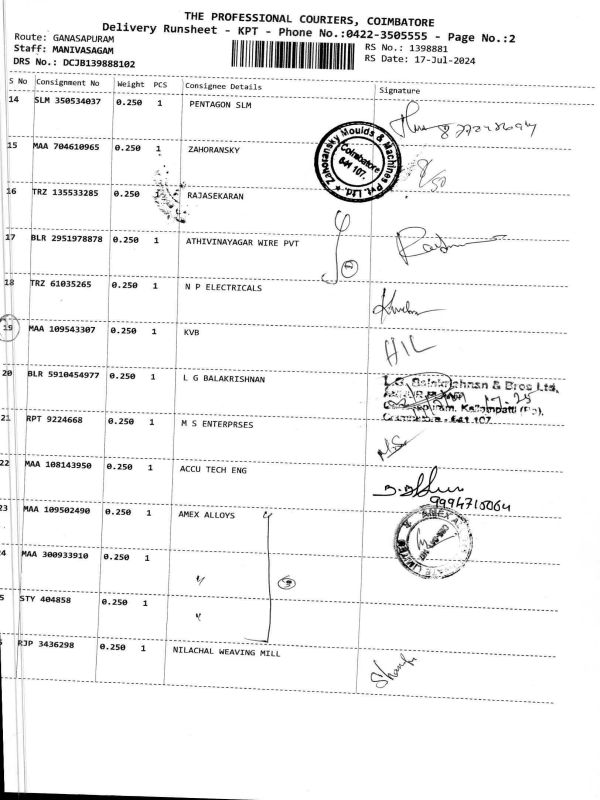 THE PROFESSIONAL COURIERS, COIMBATORE
Delivery Runsheet - KPT - Phone No.:0422-3505555 - Page No.:2
Route: GANASAPURAM
RS No.: 1398881
Staff: MANIVASAGAM
RS Date: 17-Jul-2024
DRS No.: DCJB139888102
S No Consignment No Weight PCS Consignee Details Signature
14 SLM 350534037 0.250 1 PENTAGON SLM
15 MAA 704610965 0.250 1 ZAHORANSKY
Zahoransky Moulds & Machines Pvt. Ltd.
Coimbatore
641 107.
16 TRZ 135533285 0.250 RAJASEKARAN
17 BLR 2951978878 0.250 1 ATHIVINAYAGAR WIRE PVT
18 TRZ 61035265 0.250 1 N P ELECTRICALS
19 MAA 109543307 0.250 1 KVB
20 BLR 5910454977 0.250 1 L G BALAKRISHNAN
L.G. Balakrishnan & Bros Ltd.,
Kallampatti (Po),
641 107
21 RPT 9224668 0.250 1 M S ENTERPRSES
22 MAA 108143950 0.250 1 ACCU TECH ENG
9994710064
23 MAA 109502490 0.250 1 AMEX ALLOYS
AMEX A
LIMITED
24 MAA 300933910 0.250 1
5 STY 404858 0.250 1
RJP 3436298 0.250 1 NILACHAL WEAVING MILL